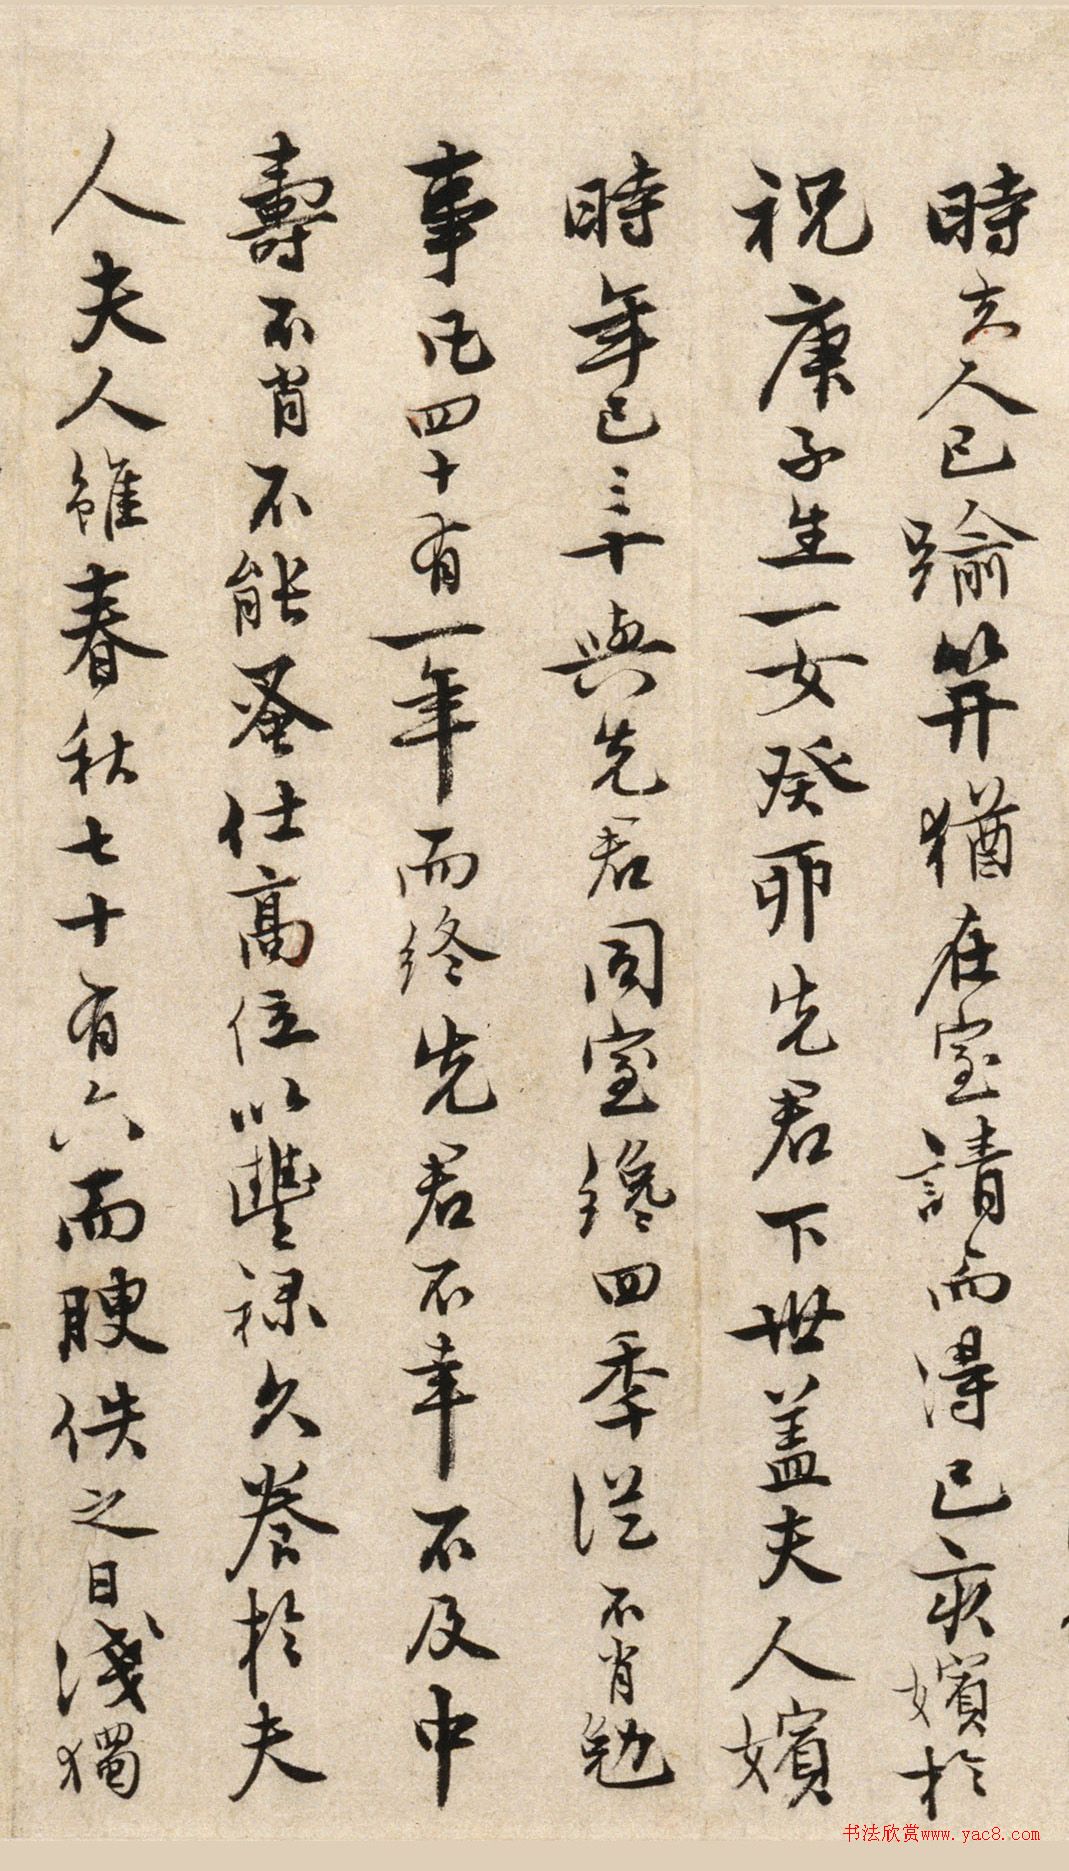 時夫人已踰笄猶在室請而得已亥嬪於
祝庚子生一女癸卯先君下世盖夫人嬪
時年已三十與先君同室纔四季從不肖勉
事凡四十有一年而終先君不幸不及中
壽不肖不能蚤仕高位以豐祿久養於夫
人夫人雖春秋七十有六而腴佚之日淺獨
书法欣赏www.yac8.com